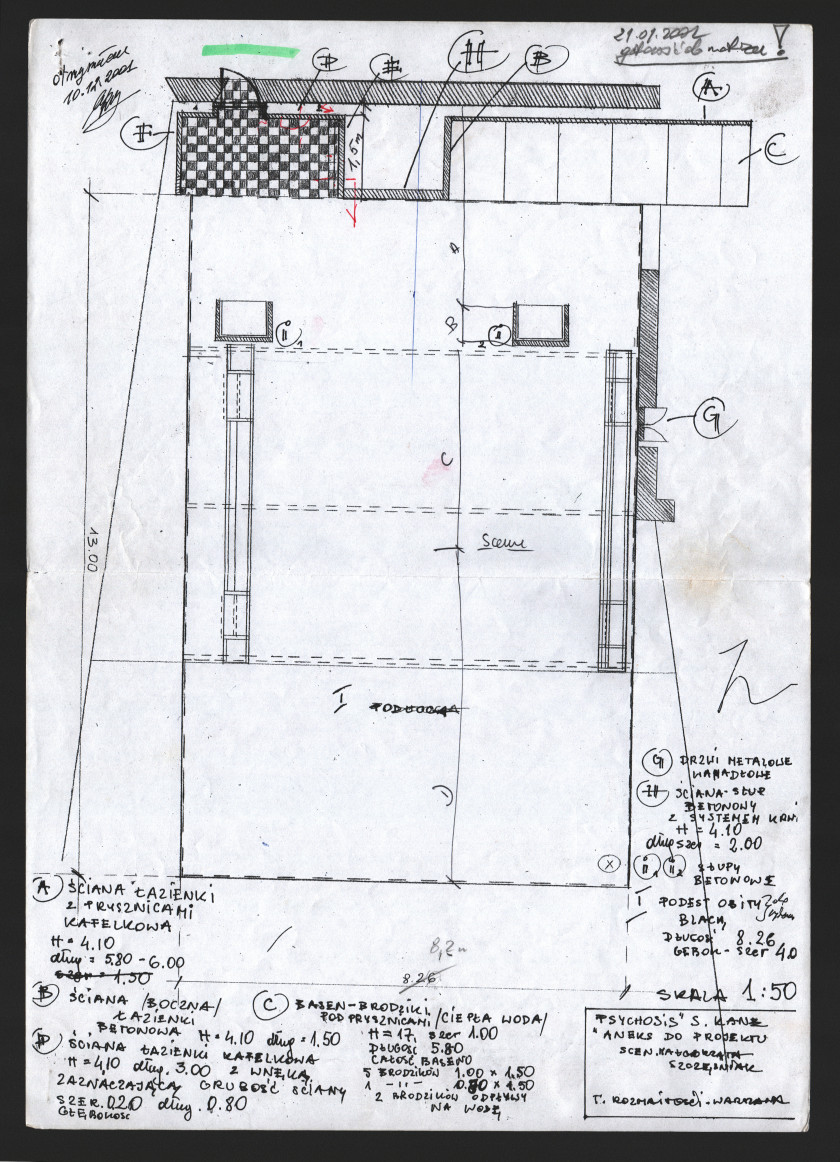 21.01.2002
gotowość do montażu!
otrzymałem
10.12.2001
D
E
H
B
A
F
C
1,5m
A
B
II 1
2 II
G
C
13.00
Scena
I PODŁOGA
D
X
8,2
8.26
G DRZWI METALOWE
WAHADŁOWE
H ŚCIANA-SŁUP
BETONOWY
Z SYSTEMEM KRWI
H = 4.10
dług szer = 2.00
II1 II2 SŁUPY
BETONOWE
I PODEST OBITY
BLACHĄ
DŁUGOŚĆ 8.26
GŁĘBOK-SZER 4.0
SKALA 1:50
A ŚCIANA ŁAZIENKI
Z PRYSZNICAMI
KAFELKOWA
H = 4.10
dług = 5.80 - 6.00
szer = 1.50
B ŚCIANA /BOCZNA/
ŁAZIENKI
BETONOWA H = 4.10 dług = 1.50
D ŚCIANA ŁAZIENKI KAFELKOWA
H = 4.10 dług. 3.00 Z WNĘKĄ
ZAZNACZAJĄCĄ GRUBOŚĆ ŚCIANY
SZER. 0.20 dług. 0.80
GŁĘBOKOŚĆ
C BASEN-BRODZIKI
POD PRYSZNICAMI /CIEPŁA WODA/
H = 17, szer 1.00
DŁUGOŚĆ 5.80
CAŁOŚĆ BASENU
5 BRODZIKÓW 1.00 x 1.50
1 -"- 0.80 x 1.50
2 BRODZIKÓW ODPŁYWY
NA WODĘ
"PSYCHOSIS" S. KANE
"ANEKS DO PROJEKTU
SCEN. MAŁGORZATA
SZCZĘŚNIAK
T. ROZMAITOŚCI-WARSZAWA